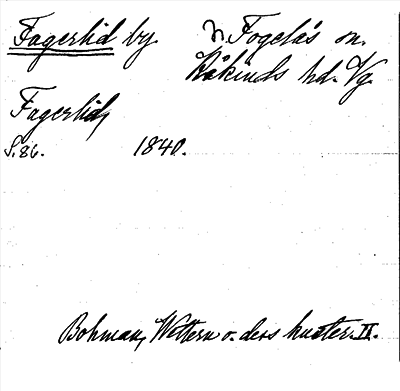 Fagerlid by N. Fogelås sn.
Kåkinds hd. Vg.
Fagerlid,
S. 86. 1840.
Bohman, Wettern o. dess kuster. II.